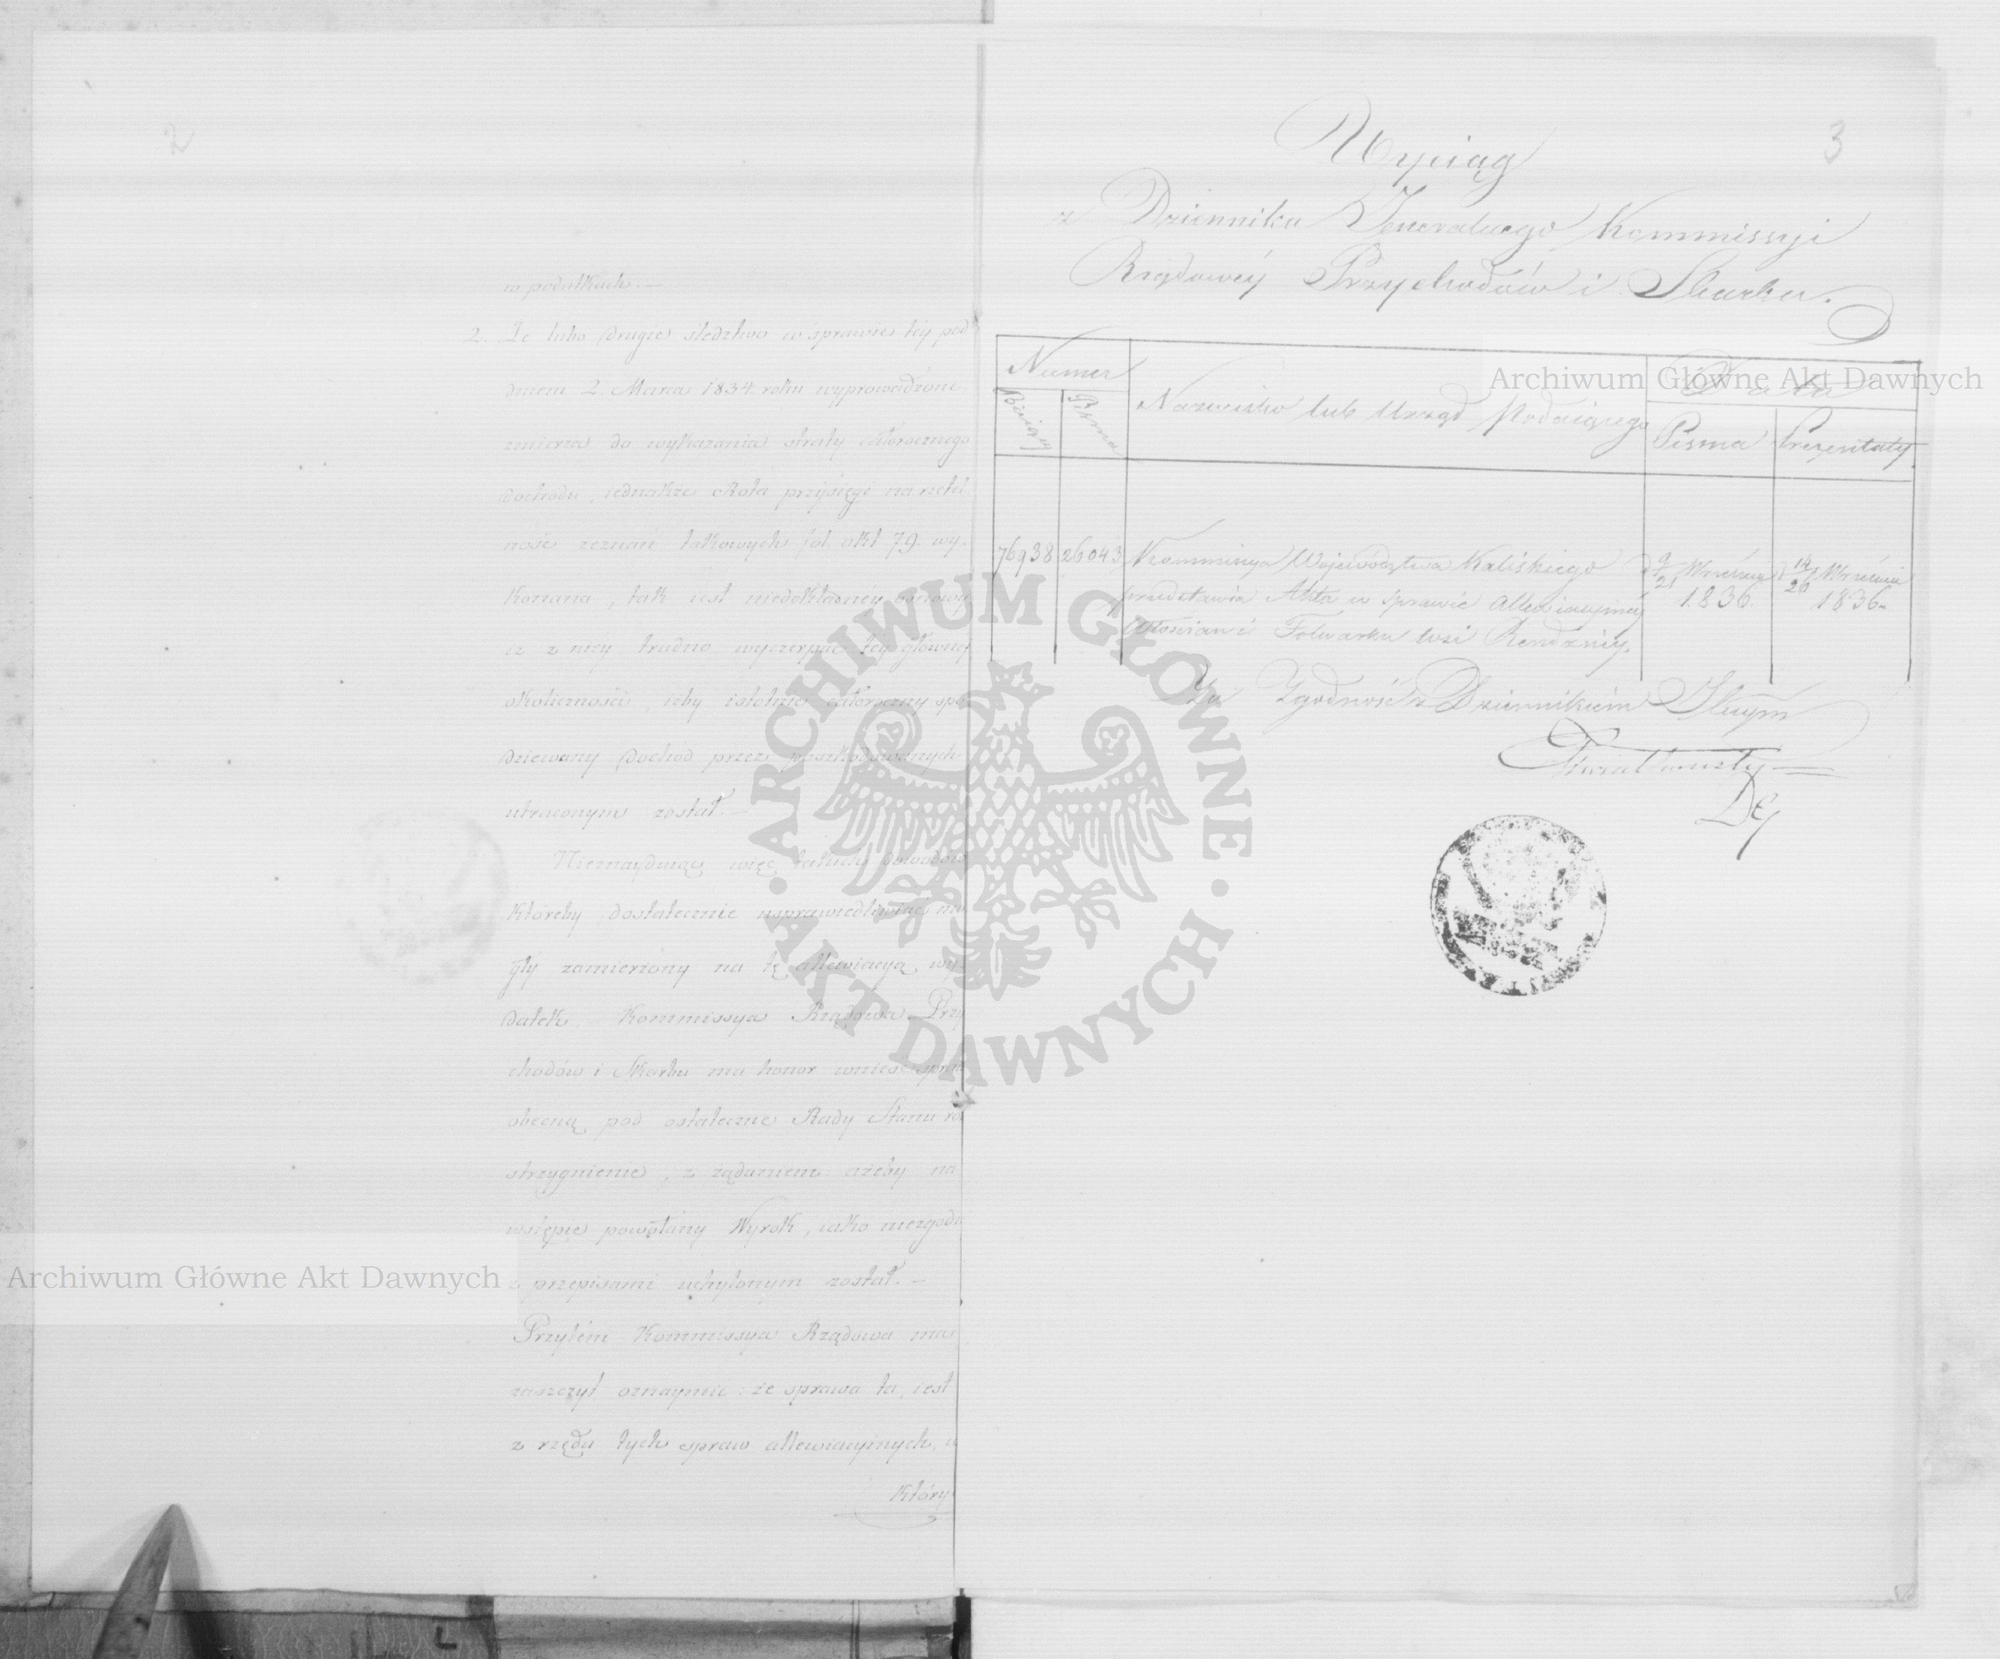 2
w podatkach.—
2. Że lubo drugie śledztwo w sprawie téy pod
dniem 2. Marca 1834 roku wyprowadzone
zmierza do wykazania straty całorocznego
dochodu, iednakże Rota przysięgi na rzetel-
ność zeznań takowych fol. akt 79. wy-
konana, tak iest niedokładney osnowy
iż z niéy trudno wyczerpać téy główney
okoliczności, iżby istotnie całoroczny spo-
dziewany dochod przez poszkodowanych
utraconym został.—
Nieznayduiąc więc takich dowodów
któreby dostatecznie usprawiedliwiać mo-
gły zamierzony na tę allewiacyą wy-
datek, Kommissya Rządowa Przy-
chodów i Skarbu ma honor wnieść sprawę
obecną pod ostateczne Rady Stanu ro-
strzygnienie, z żądaniem ażeby na
wstępie powołany Wyrok, iako niezgodn
z przepisami uchylonym został.—
Przytém Kommissya Rządowa ma
zaszczyt oznaymić: że sprawa ta, iest
z rzędu tych spraw allewiacyinych, w
który
3
Wyciąg
z Dziennika Jeneralnego Kommissyi
Rządowéy Przychodów i Skarbu.
Numer
Bieżący
Pisma
Nazwisko lub Urząd Podaiącego
Data
Pisma
Prezentaty
76938
26043
Kommissya Województwa Kaliskiego
przedstawia Akta w sprawie allewiacyinéy
Włościan i Folwarku wsi Rendziny.
d 9/21 Września
1836.
d 14/26 Września
1836.
Za Zgodność z Dziennikiem Głnym
Archiwum Główne Akt Dawnych
Archiwum Główne Akt Dawnych
ARCHIWUM GŁÓWNE
· AKT DAWNYCH ·